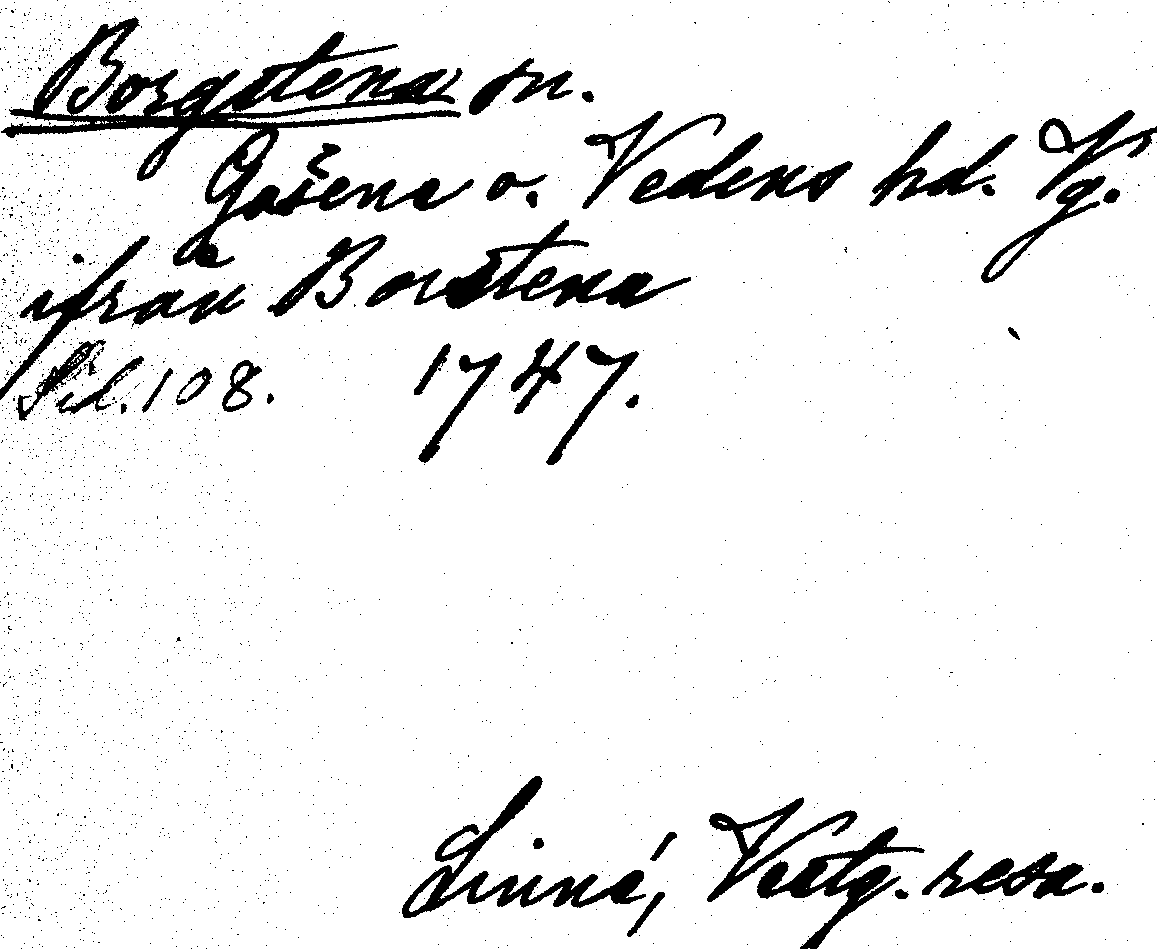 Borgstena sn.
Gäsene o. Vedens hd. Vg.
ifrån Borstena
Sid. 108. 1747.
Linné, Vestg. resa.